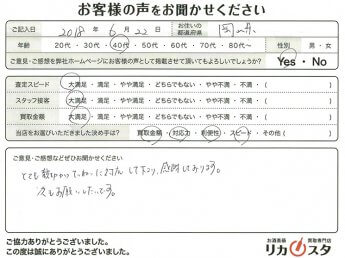 お客様の声をお聞かせください
ご記入日 2018 年 6 月 22 日 お住いの都道府県 岡山
年齢 20代・30代・40代・50代・60代・70代・80代～ 性別 男・女
ご意見・ご感想を弊社ホームページにお客様の声として掲載させて頂いてもよろしいでしょうか? Yes・No
査定スピード 大満足・満足・やや満足・どちらでもない・やや不満・不満・( )
スタッフ接客 大満足・満足・やや満足・どちらでもない・やや不満・不満・( )
買取金額 大満足・満足・やや満足・どちらでもない・やや不満・不満・( )
当店をお選びいただきました決め手は? 買取金額・対応力・利便性・スピード・その他( )
ご意見・ご感想などぜひお聞かせください。
とても親切かつていねいに対応して下さり、感謝しております。
次もお願いしたいです。
ご協力ありがとうございました。
この度は誠にありがとうございました。
お酒高額買取専門店
リカスタ